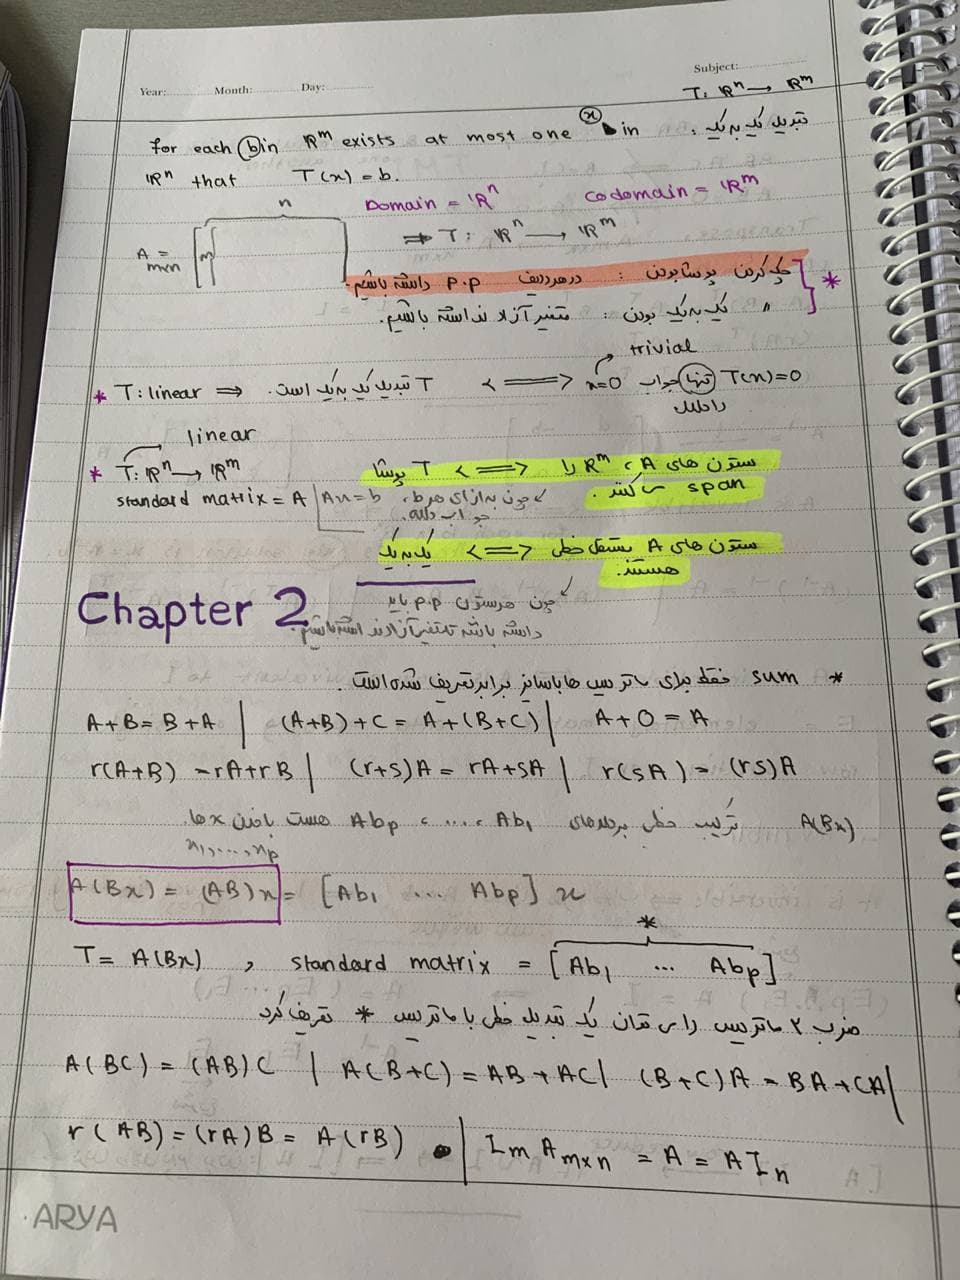 Year: Month: Day: Subject:
T: ℝⁿ → ℝᵐ
تبدیل یک به یک :
for each b in ℝᵐ exists at most one x in
ℝⁿ that T(x) = b.
n
Domain = ℝⁿ Codomain = ℝᵐ
A = m
m×n
⇒ T: ℝⁿ → ℝᵐ
* چک کردن پوشا بودن : در هر ردیف p.p داشته باشیم.
〃 یک به یک بودن : متغیر آزاد نداشته باشیم.
trivial
* T: linear ⇒ T تبدیل یک به یک است. <⟹ T(x)=0 تنها جواب x=0
را دارد
linear
* T: ℝⁿ → ℝᵐ
T پوشا <⟹ ستون های A، ℝᵐ را
span می کنند.
standard matrix = A | Ax=b چون به ازای هر b،
جواب دارد.
یک به یک <⟹ ستون های A مستقل خطی
هستند.
Chapter 2
چون هر ستون p.p باید
داشته باشد تا متغیر آزاد نداشته باشیم.
* sum فقط برای ماتریس ها با سایز برابر تعریف شده است.
A+B=B+A | (A+B)+C = A+(B+C) | A+0=A
r(A+B) = rA+rB | (r+s)A = rA+sA | r(sA) = (rs)A
A(Bx) ترکیب خطی بردارهای Ab₁ ، ... ، Abp هست با وزن x ها.
x₁, ..., xp
A(Bx) = (AB)x = [Ab₁ ... Abp] x
*
T = A(Bx) , standard matrix = [Ab₁ ... Abp]
ضرب ۲ ماتریس را می توان یک تبدیل خطی با ماتریس * تعریف کرد
A(BC) = (AB)C | A(B+C) = AB+AC | (B+C)A = BA+CA |
r(AB) = (rA)B = A(rB) . | Iₘ Aₘ×ₙ = A = A Iₙ
ARYA